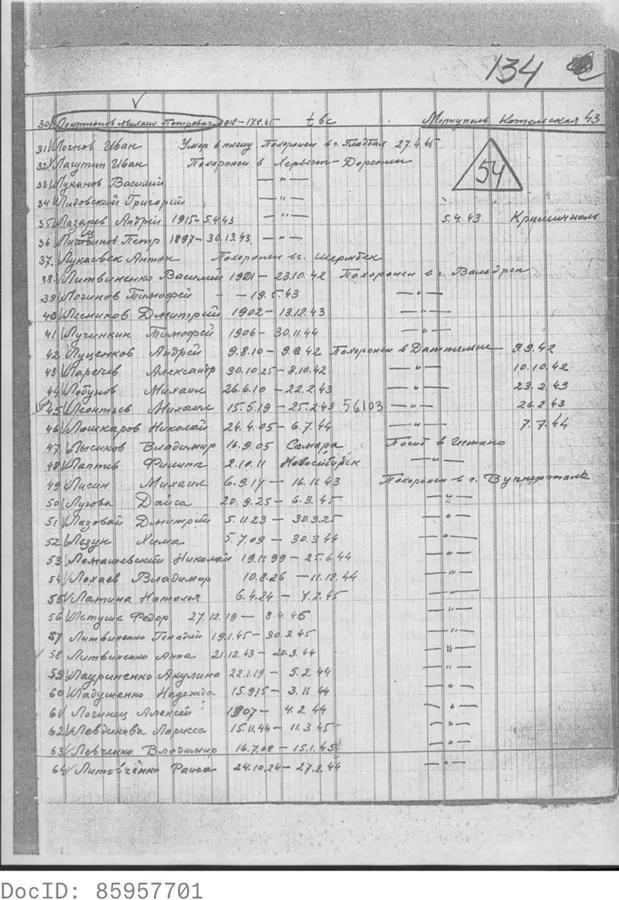 134
30 Михаил Петрович 1918-17.8.45 tbc Мариуполь 43
31 Логнов Иван Умер в плену Похоронен в г. Гладбах 27.4.45
32 Лагутин Иван Похоронен в Хервест-Дорстен
54
33 Луканов Василий — " —
34 Лидовский Григорий — " —
35 Лазарев Андрей 1915-5.4.43 — " — 5.4.43
36 Петр 1897-30.13.43 — " —
37. Антон Похоронен в г.
38 Литвиненко Василий 1921-23.10.42 Похоронен в г. Вальдроп
39 Логинов Тимофей - -19.5.43 — " —
40 Лесников Дмитрий 1902-13.12.43 — " —
41 Лучинкин Тимофей 1906-30.11.44 — " —
42 Луценков Андрей 9.8.10-9.8.42 Похоронен в 9.9.42
43 Ларечев Александр 30.10.25-8.10.42 — " — 10.10.42
44 Лобунов Михаил 26.6.10-22.2.43 — " — 23.2.43
45 Леонтьев Михаил 15.5.19-25.2.43 56103 — " — 26.2.43
46 Лошкаров Николай 24.4.05-6.7.44 — " — 7.7.44
47 Лысиков Владимир 16.9.05 Самара Погиб в
48 Лаптив Филипп 2.10.11 Новосибирск — " —
49 Лисин Михаил 6.9.17-16.11.43 Похоронен в г. Вуппертале
50 Лугова Дайса 20.9.25-6.3.45 — " —
51 Лазовой Дмитрий 5.11.23-30.3.25 — " —
52 Лезун Хима 5.7.09-30.3.44 — " —
53 Ломашевский Николай 19.11.99-25.6.44 — " —
54 Лохаев Владимир 10.8.26-11.12.44 — " —
55 Латина Наталья 6.4.24-7.2.45 — " —
56 Федор 27.12.19-8.4.45 — " —
57 Литвиненко Генадий 19.1.45-30.2.45 — " —
58 Литвиненко Анна 21.12.43-20.3.44 — " —
59 Лауриненко Акулина 22.1.19-5.2.44 — " —
60 Ладушенко Надежда 15.9.15-3.11.44 — " —
61 Логинец Алексей 1907-4.2.44 — " —
62 Левдикова Лорисса 15.11.44-11.3.45 — " —
63 Левченко Владимир 16.7.08-15.1.45 — " —
64 Литовченко Раиса 24.10.24-27.2.44 — " —
DocID: 85957701